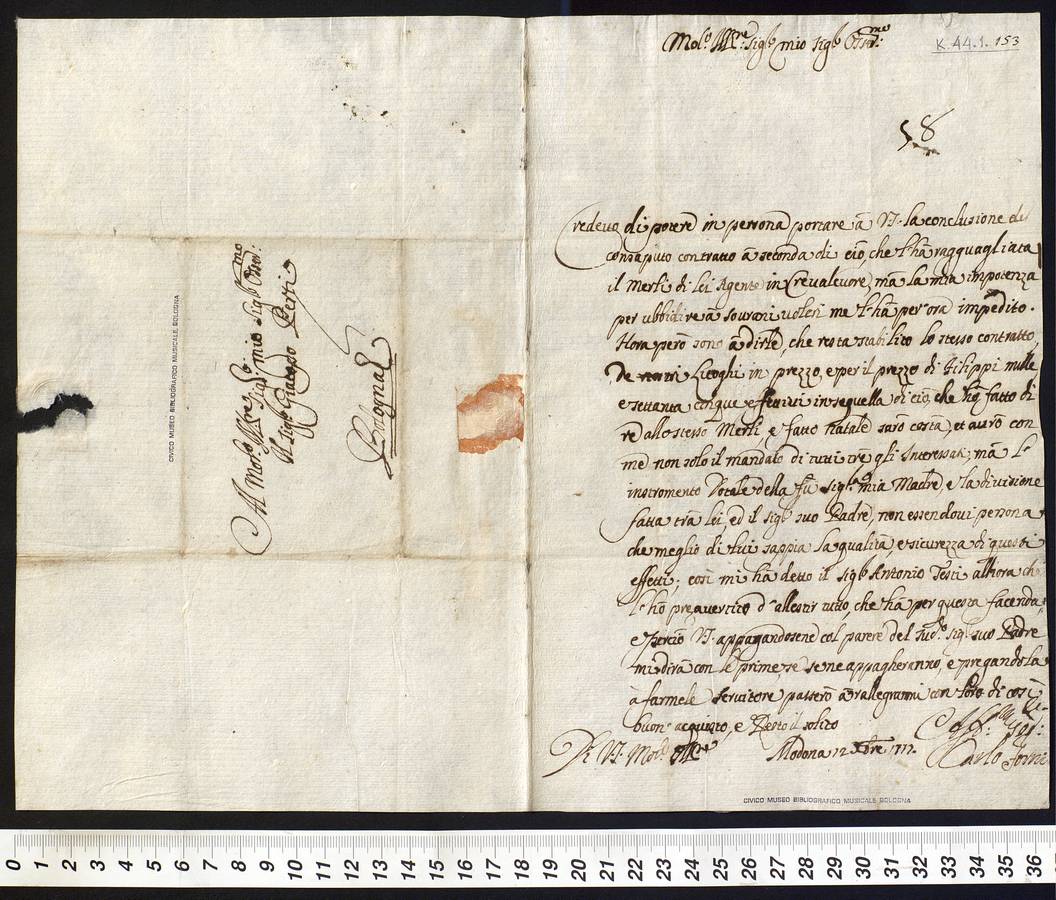 Al Mol.o Ill.re Sig.r mio Sig.r Oss.mo
Il Sig.r Giacopo Perti
Bologna
CIVICO MUSEO BIBLIOGRAFICO MUSICALE BOLOGNA
Mol.o Ill.re Sig.r mio Sig.r Oss.mo
K.44.1.153
58
Credevo di potere in persona portare à V.S. la conclusione del
consaputo contratto à seconda di ciò, che l'hà ragguagliata
il Merli di lei Agente in Crevalcore, mà la mia impotenza
per ubbidire à sourani voleri me l'hà per ora impedito.
Hora però sono à dirle, che resta stabilito lo stesso contratto
Luoghi in prezzo, e per il prezzo di Filippi mille
e settanta cinque effettivi in sequella di ciò, che hò fatto di
re allo stesso Merli, e fatto natale sarò costà, et avrò con
me non solo il mandato di tutti tre gli Interessati, mà l'
instromento Dotale della fù Sig.ra mia Madre, e la divisione
fatta trà lei, ed il Sig.r suo Padre, non essendovi persona
che meglio di lui sappia la qualità, e sicurezza di questi
effetti; così mi hà detto il Sig.r Antonio Testi allhora che
l'hò preavertito d'allestir tutto, che hà per questa facenda,
e perciò V.S. appagandosene col parere del sud.o Sig.r suo Padre
mi dirà con le prime, se se ne appagheranno, e pregandola
à farmele servitore passerò à rallegrarmi con loro di così
buon acquisto, e resto il solito
Di V.S. Mol.o Ill.re
Modona 12 Xbre 1717
Carlo Forni
CIVICO MUSEO BIBLIOGRAFICO MUSICALE BOLOGNA
0 1 2 3 4 5 6 7 8 9 10 11 12 13 14 15 16 17 18 19 20 21 22 23 24 25 26 27 28 29 30 31 32 33 34 35 36